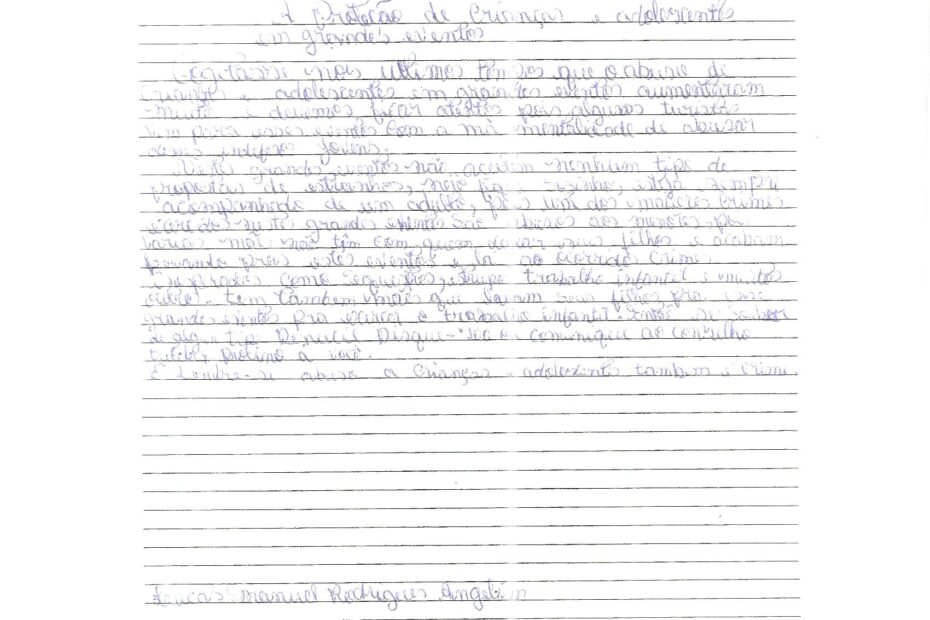 A Proteção de Crianças e adolescentes
em grandes eventos
nos últimos tempos que o abuso de
crianças e adolescentes em grandes eventos aumentaram
muito e devemos ficar atentos pois alguns turistas
vem para esses eventos com a má mentalidade de abusar
jovens.
Nestes grandes eventos não aceitem nenhum tipo de
propostas de estranhos, não fique sozinho, esteja sempre
acompanhado de um adulto, pois um dos maiores crimes
grandes eventos são abusos aos menores, por
varias mães não têm com quem deixar seus filhos e acabam
levando pra estes eventos e la
como sequestro, estupro trabalho infantil e muitos
outros. tem também mães que levam seus filhos pra esse
grandes eventos pra exercer o trabalho infantil então se souber
de algum tipo Denucie Disque-100 ou comunique ao conselho
tutelar proximo a você.
E Lembre-se abuso a Crianças e adolescentes também é crime.
Lucas Manuel Rodrigues Angelim